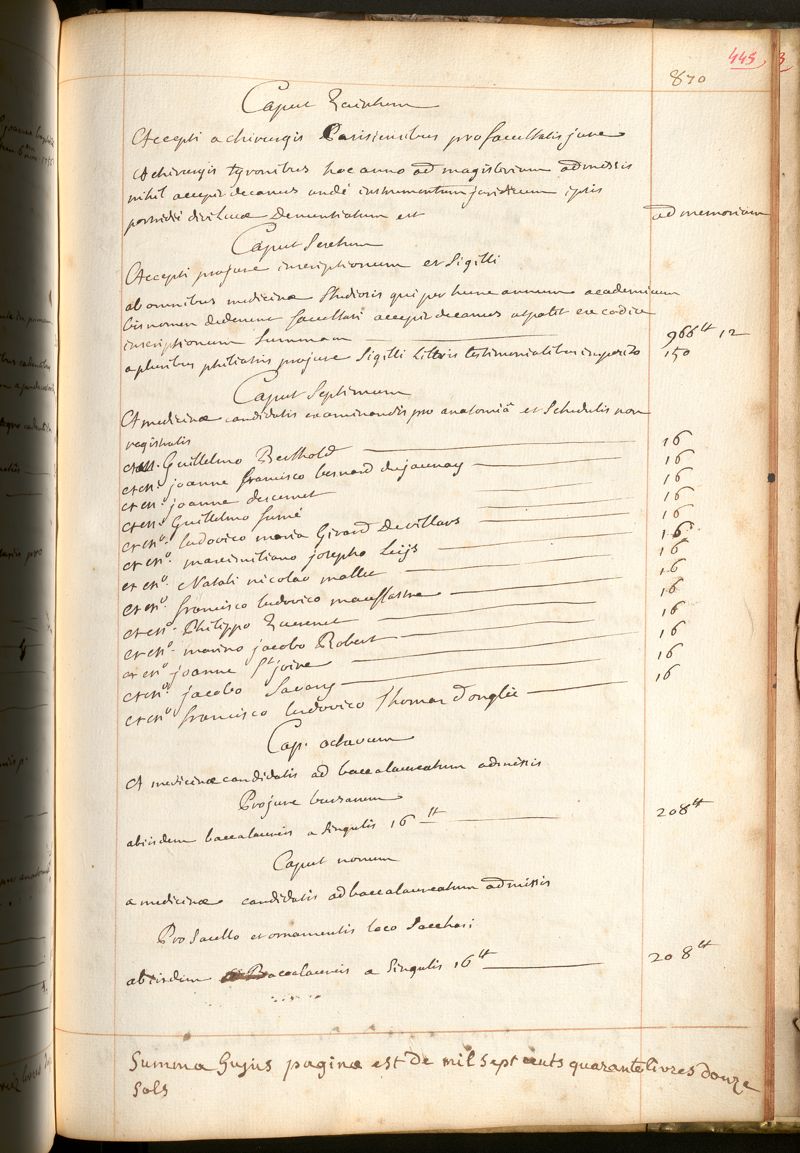 445
870
Caput quintum
Accepti a chirurgis Parisiensibus pro facultatis jure
A chirurgis tyronibus hoc anno ad magisterium admissis
nihil accepit decanus unde instrumentum juridicum ipsis
est ad memoriam
Caput Sextum
Accepti pro jure inscriptionum et Sigilli
ab omnibus medicinæ Studiosis qui per hunc annum academicum
bis nomen dederunt facultati accepit decanus ut patet ex codice
inscriptionum Summam 966 tt 12
a pluribus philiatris pro jure Sigilli Litteris testimonialibus 150
Caput Septimum
A medicinæ candidatis examinandis pro anatomiâ et Schedulis non
registratis
Guillelmo Berthold 16
et ex mo. joanne francisco bernard dejaunay 16
et ex mo. joanne descemet 16
et ex mo. Guillelmo Sumé 16
et ex mo. ludovico maria Girard Devillars 16
et ex mo. maximiliano josepho Leijs 16
et ex mo. Natali nicolao mallu 16
et ex mo. francisco ludovico 16
et ex mo. Philippo 16
et ex mo. marino jacobo Robert 16
et ex mo. joanne 16
et ex mo. jacobo Savary 16
et ex mo. francisco ludovico Thoma Donglée 16
Cap. octavum
A medicinæ candidatis ad baccalaureatum admissis
Pro jure bursarum
ab iisdem baccalaureis a Singulis 16 tt 208 tt
Caput nonum
a medicinæ candidatis ad baccalaureatum admissis
Pro Sacello et ornamentis loco Sacchari
ab iisdem Baccalaureis a Singulis 16 tt 208 tt
Summa hujus paginæ est de mil sept cents quarante livres douze
Sols